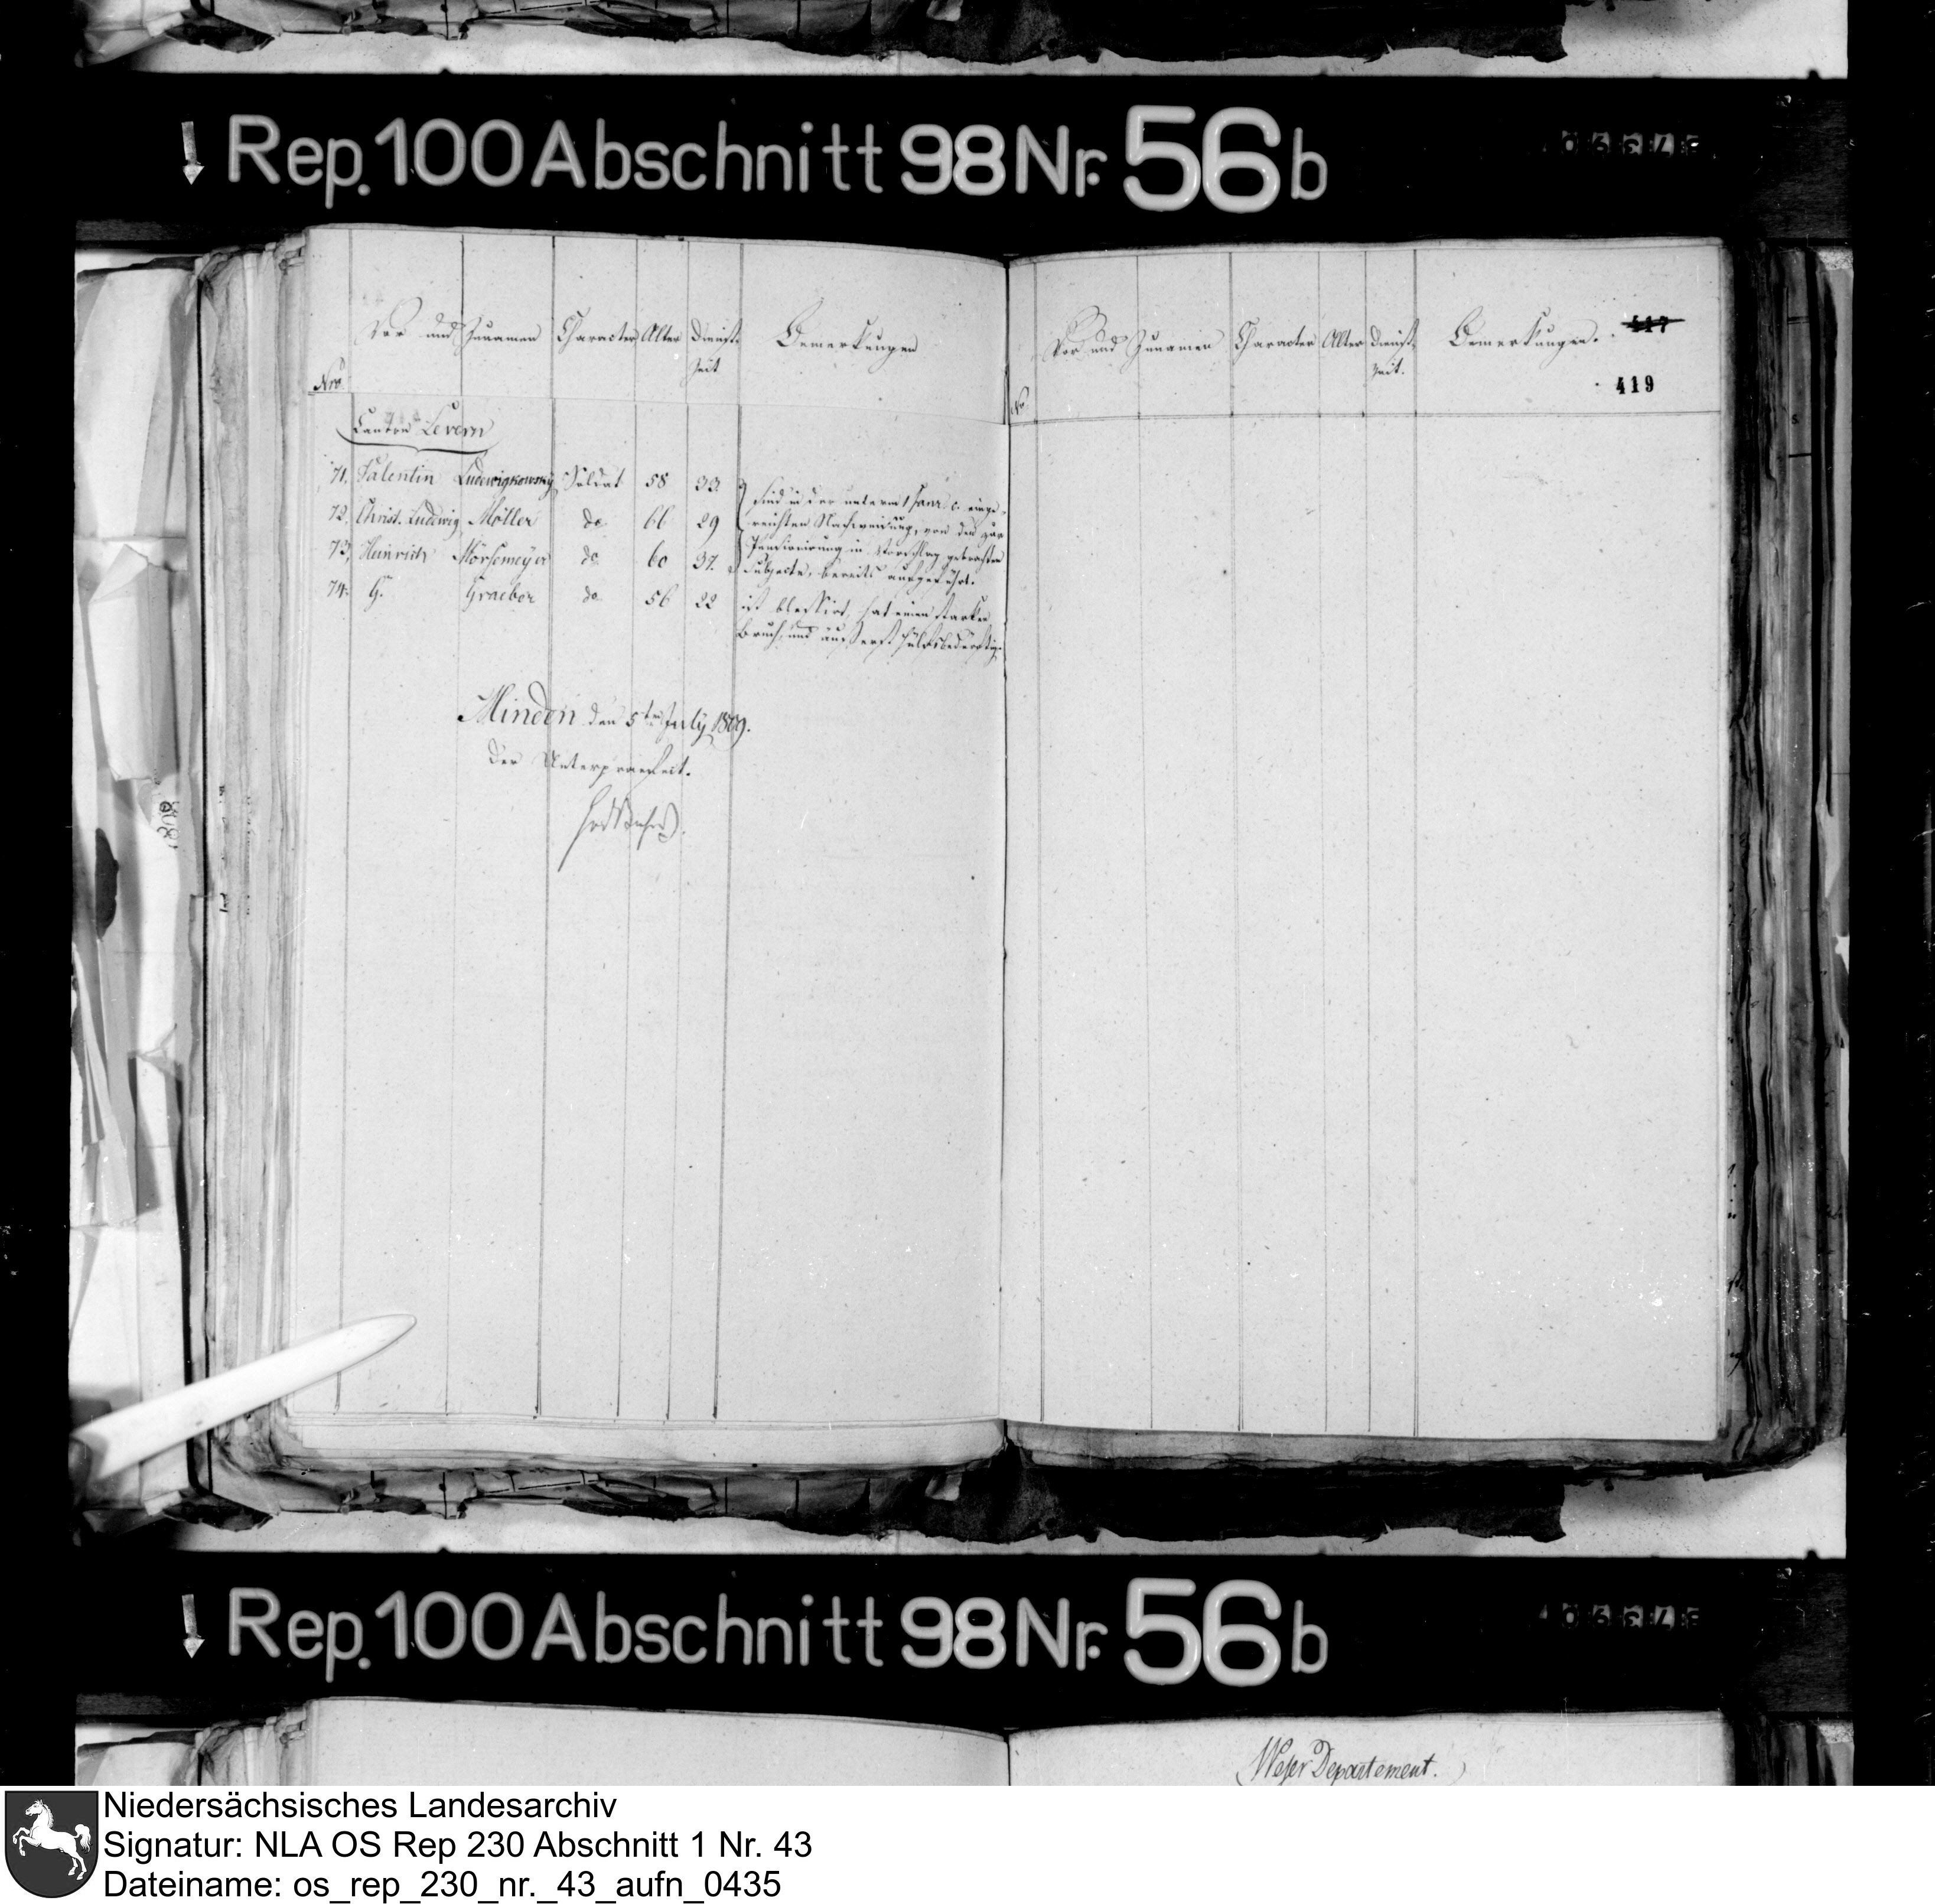 Rep. 100 Abschnitt 98 Nr. 56 b
Vor und Zunamen Character Alter Dienst- Bemerkungen
zeit
Nro.
Canton Levern
71. Valentin Ludewigkowsky Soldat 58 33
72. Christ. Ludwig Möller do 66 29
73. Heinrich Morsemeyer do 60 37
74. G. Graeber do 56 22
sind in der unterm 1 Janr. c. einge-
reichten Nachweisung, von den zur
Pensionirung in Vorschlag gebrachten
Subjecte, bereits aufgeführt.
ist blessirt, hat einen starken
Bruch, und äußerst hülfsbedürftig.
Minden den 5ten July 1809.
Der Unterpraefect.
Vor und Zunamen Character Alter Dienst- Bemerkungen. 417
zeit.
419
No.
1808
Rep. 100 Abschnitt 98 Nr. 56 b
Weser Departement.
Niedersächsisches Landesarchiv
Signatur: NLA OS Rep 230 Abschnitt 1 Nr. 43
Dateiname: os_rep_230_nr._43_aufn_0435